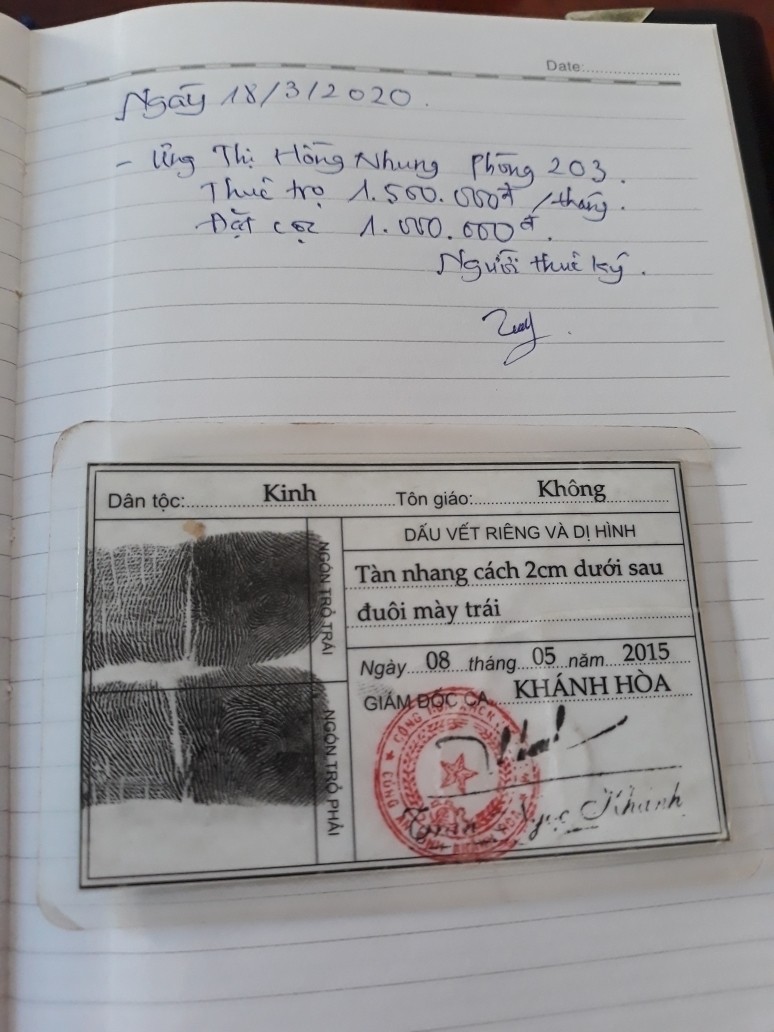 Date:
Ngày 18/3/2020.
- Ung Thị Hồng Nhung Phòng 203.
Thuê trọ 1.500.000đ /tháng.
Đặt cọc 1.000.000đ.
Người thuê ký.
Dân tộc: Kinh Tôn giáo: Không
NGÓN TRỎ TRÁI
NGÓN TRỎ PHẢI
DẤU VẾT RIÊNG VÀ DỊ HÌNH
Tàn nhang cách 2cm dưới sau
đuôi mày trái
Ngày 08 tháng 05 năm 2015
GIÁM ĐỐC CA KHÁNH HÒA
Ngọc Khánh